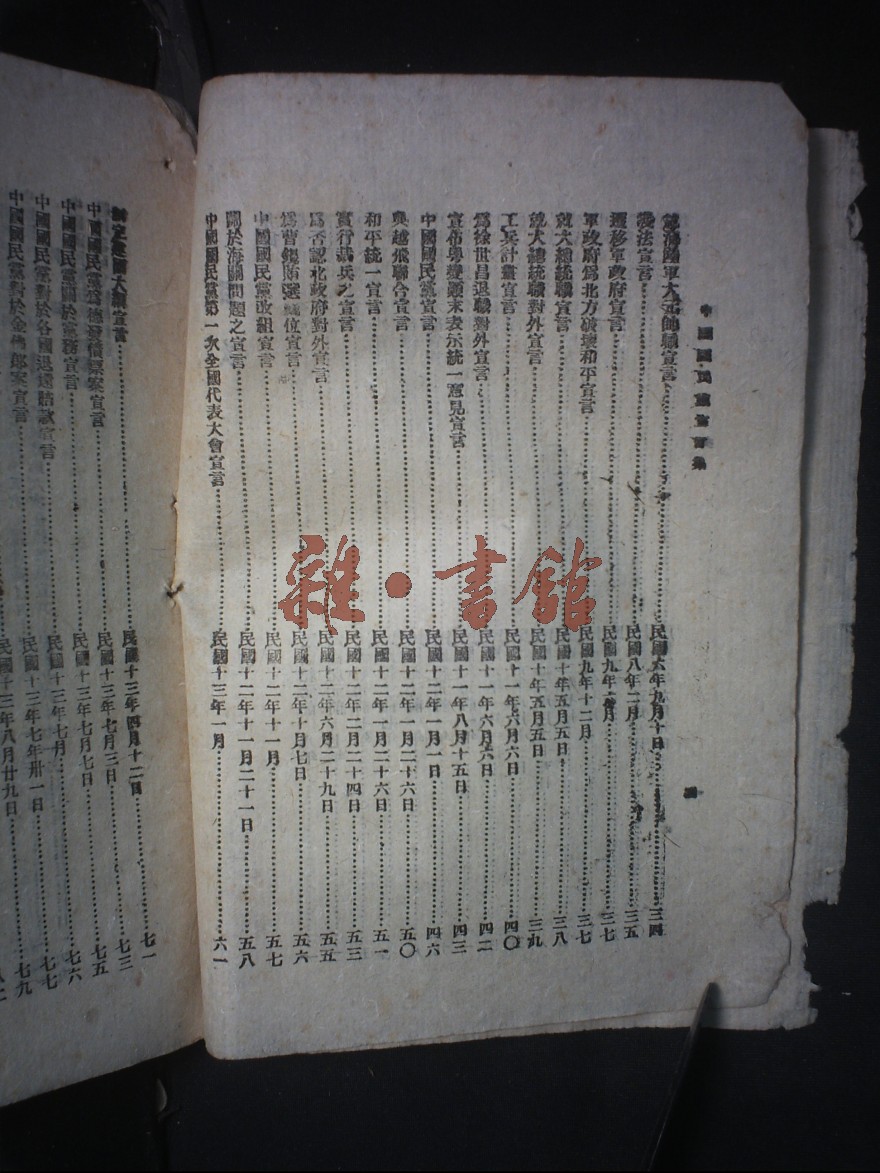 中國國民黨宣言集
就海陸軍大元帥職宣言 民國六年九月十日 三四
護法宣言 民國八年二月 三五
遷移軍政府宣言 民國九年 月 三七
軍政府爲北方破壞和平宣言 民國九年十二月 三七
就大總統職宣言 民國十年五月五日 三八
就大總統職對外宣言 民國十年五月五日 三九
工兵計畫宣言 民國十一年六月六日 四〇
爲徐世昌退職對外宣言 民國十一年六月六日 四二
宣布粵變顚末表示統一意見宣言 民國十一年八月十五日 四三
中國國民黨宣言 民國十二年一月一日 四六
奧越飛聯合宣言 民國十二年一月二十六日 五〇
和平統一宣言 民國十二年一月二十六日 五一
實行裁兵之宣言 民國十二年二月二十四日 五三
爲否認北政府對外宣言 民國十二年六月二十九日 五五
爲曹錕賄選竊位宣言 民國十二年十月七日 五六
中國國民黨改組宣言 民國十二年十一月 五七
關於海關問題之宣言 民國十二年十一月二十一日 五八
中國國民黨第一次全國代表大會宣言 民國十三年一月 六一
制定建國大綱宣言 民國十三年四月十二日 七一
中國國民黨爲德發債票案宣言 民國十三年七月三日 七三
中國國民黨關於黨務宣言 民國十三年七月七日 七五
中國國民黨對於各國退還賠款宣言 民國十三年七月 七六
中國國民黨對於金佛郎案宣言 民國十三年七年卅一日 七七
民國十三年八月廿九日 七九
雜·書館